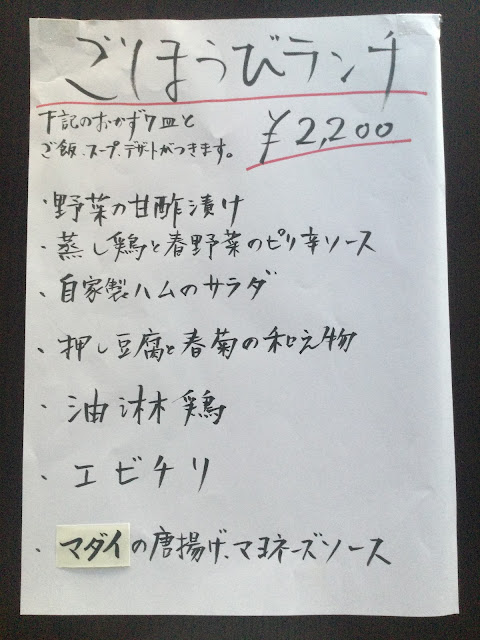 ごほうびランチ
下記のおかず7皿と
ご飯、スープ、デザートがつきます。
¥2,200
・野菜の甘酢漬け
・蒸し鶏と春野菜のピリ辛ソース
・自家製ハムのサラダ
・押し豆腐と春菊の和え物
・油淋鶏
・エビチリ
・マダイの唐揚げ、マヨネーズソース